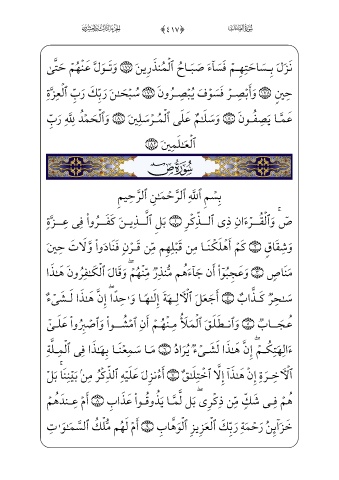 سُورَةُ الصَّافَّاتِ ﴿٤١٧﴾ الجُزْءُ الثَّالِثُ وَالعِشْرُونَ
نَزَلَ بِسَاحَتِهِمْ فَسَآءَ صَبَاحُ ٱلْمُنذَرِينَ ۝١٧٧ وَتَوَلَّ عَنْهُمْ حَتَّىٰ
حِينٍ ۝١٧٨ وَأَبْصِرْ فَسَوْفَ يُبْصِرُونَ ۝١٧٩ سُبْحَـٰنَ رَبِّكَ رَبِّ ٱلْعِزَّةِ
عَمَّا يَصِفُونَ ۝١٨٠ وَسَلَـٰمٌ عَلَى ٱلْمُرْسَلِينَ ۝١٨١ وَٱلْحَمْدُ لِلَّهِ رَبِّ
ٱلْعَـٰلَمِينَ ۝١٨٢
سُورَةُ ص
بِسْمِ ٱللَّهِ ٱلرَّحْمَـٰنِ ٱلرَّحِيمِ
صٓ ۚ وَٱلْقُرْءَانِ ذِى ٱلذِّكْرِ ۝١ بَلِ ٱلَّذِينَ كَفَرُوا۟ فِى عِزَّةٍ
وَشِقَاقٍ ۝٢ كَمْ أَهْلَكْنَا مِن قَبْلِهِم مِّن قَرْنٍ فَنَادَوا۟ وَّلَاتَ حِينَ
مَنَاصٍ ۝٣ وَعَجِبُوٓا۟ أَن جَآءَهُم مُّنذِرٌ مِّنْهُمْ ۖ وَقَالَ ٱلْكَـٰفِرُونَ هَـٰذَا
سَـٰحِرٌ كَذَّابٌ ۝٤ أَجَعَلَ ٱلْـَٔالِهَةَ إِلَـٰهًا وَٰحِدًا ۖ إِنَّ هَـٰذَا لَشَىْءٌ
عُجَابٌ ۝٥ وَٱنطَلَقَ ٱلْمَلَأُ مِنْهُمْ أَنِ ٱمْشُوا۟ وَٱصْبِرُوا۟ عَلَىٰٓ
ءَالِهَتِكُمْ ۖ إِنَّ هَـٰذَا لَشَىْءٌ يُرَادُ ۝٦ مَا سَمِعْنَا بِهَـٰذَا فِى ٱلْمِلَّةِ
ٱلْـَٔاخِرَةِ إِنْ هَـٰذَآ إِلَّا ٱخْتِلَـٰقٌ ۝٧ أَءُنزِلَ عَلَيْهِ ٱلذِّكْرُ مِنۢ بَيْنِنَا ۚ بَلْ
هُمْ فِى شَكٍّ مِّن ذِكْرِى ۖ بَل لَّمَّا يَذُوقُوا۟ عَذَابِ ۝٨ أَمْ عِندَهُمْ
خَزَآئِنُ رَحْمَةِ رَبِّكَ ٱلْعَزِيزِ ٱلْوَهَّابِ ۝٩ أَمْ لَهُم مُّلْكُ ٱلسَّمَـٰوَٰتِ